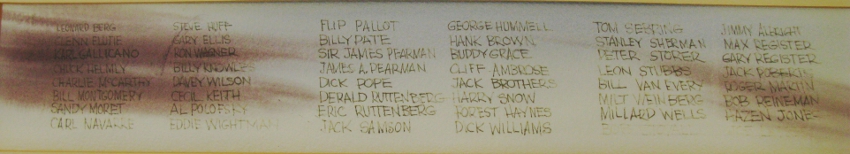 LEONARD BERG STEVE HUFF FLIP PALLOT GEORGE HUMMELL TOM SEBRING JIMMY ALBRIGHT
GLENN FLUTIE GARY ELLIS BILLY PATE HANK BROWN STANLEY SHERMAN MAX REGISTER
KARL GALLICANO RON WAGNER SIR JAMES PEARMAN BUDDY GRACE PETER STORER GARY REGISTER
JACK HELMLY BILLY KNOWLES JAMES A. PEARMAN CLIFF AMBROSE LEON STUBBS JACK
CHARLIE McCARTHY DAVEY WILSON DICK POPE JACK BROTHERS BILL VAN EVERY ROGER MARTIN
BILL MONTGOMERY CECIL KEITH DERALD RUTTENBERG HARRY SNOW MILT WEINBERG BOB REINEMAN
SANDY MORET AL POLOFSKY ERIC RUTTENBERG FOREST HAYNES MILLARD WELLS HAZEN JONES
CARL NAVARRE EDDIE WIGHTMAN JACK SAMSON DICK WILLIAMS